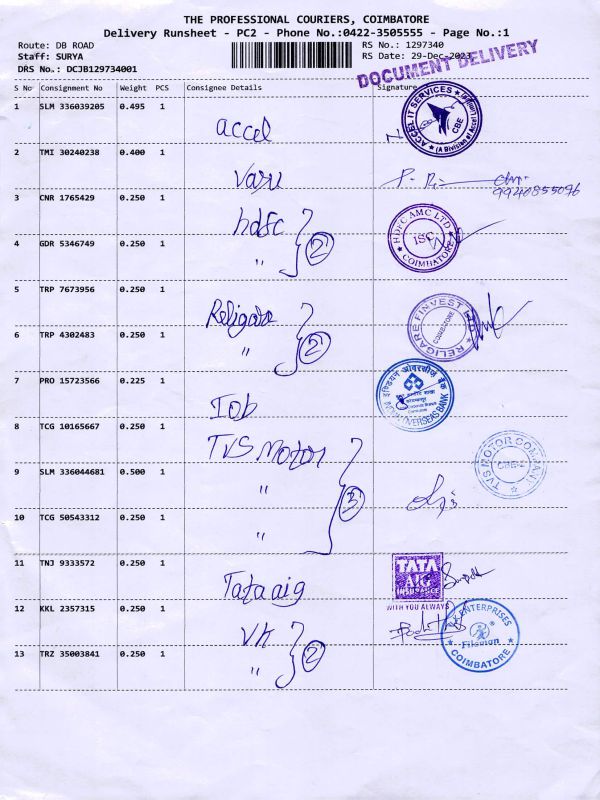 THE PROFESSIONAL COURIERS, COIMBATORE
Delivery Runsheet - PC2 - Phone No.:0422-3505555 - Page No.:1
Route: DB ROAD RS No.: 1297340
Staff: SURYA RS Date: 29-Dec-2023
DRS No.: DCJB129734001
DOCUMENT DELIVERY
S No Consignment No Weight PCS Consignee Details Signature
1 SLM 336039205 0.495 1
accel
ACCEL IT SERVICES
CBE
(A Division of Accel
2 TMI 30240238 0.400 1
Vasu
9940855096
3 CNR 1765429 0.250 1
hdfc
HDFC AMC LTD
ISC
COIMBATORE
4 GDR 5346749 0.250 1
" 2
5 TRP 7673956 0.250 1
Religare
RELIGARE FINVEST LTD
COIMBATORE
6 TRP 4302483 0.250 1
" 2
7 PRO 15723566 0.225 1
Iob
इण्डियन ओवरसीज बैंक
INDIAN OVERSEAS BANK
8 TCG 10165667 0.250 1
TVS Motor
TVS MOTOR COMPANY
CBE-2
9 SLM 336044681 0.500 1
" 3
10 TCG 50543312 0.250 1
"
11 TNJ 9333572 0.250 1
Tata aig
TATA
AIG
INSURANCE
WITH YOU ALWAYS
12 KKL 2357315 0.250 1
VK
V.K ENTERPRISES
COIMBATORE
13 TRZ 35003841 0.250 1
" 2